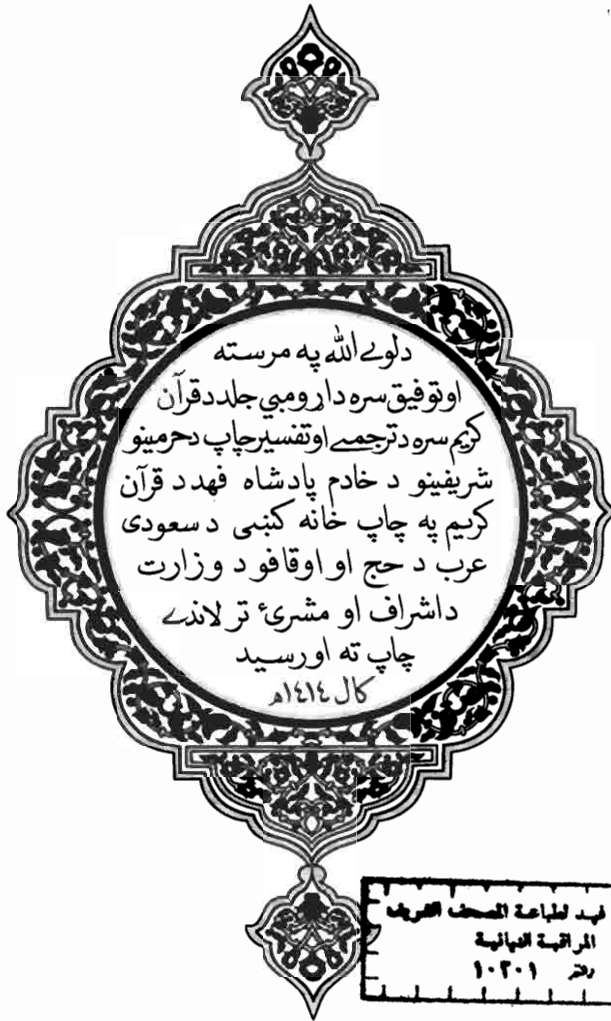 دلوے الله په مرسته
اوتوفيق سره دا ړومبي جلد د قرآن
کريم سره د ترجمے اوتفسير چاپ د حرمينو
شريفينو د خادم پادشاه فهد د قرآن
کريم په چاپ خانه کښی د سعودی
عرب د حج او اوقافو د وزارت
د اشراف او مشرۍ تر لاندے
چاپ ته اورسيد
کال ١٤١٤ھ
فهد لطباعة المصحف الشريف
المراقبة النهائية
١٠٢٠١